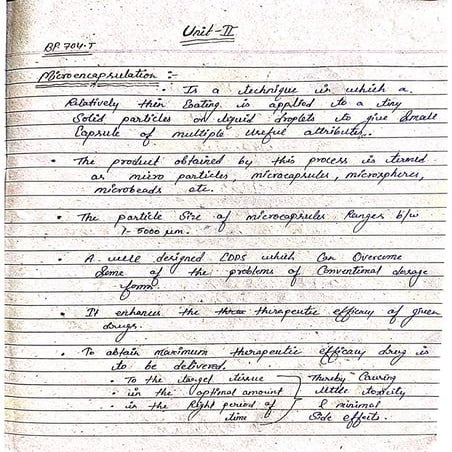 Unit-II
BP. 704.T
Microencapsulation :-
• Is a technique in which a
Relatively thin Coating is applied to a tiny
Solid particles or liquid droplets to give Small
Capsule of multiple useful attributes.
• The product obtained by this process is termed
as micro particles, microcapsules, microspheres,
microbeads etc.
• The particle Size of microcapsules Ranges b/w
1-5000 μm.
• A well designed CDDS which Can Overcome
Some of the problems of Conventional dosage
form.
• It enhances the therapeutic efficacy of given
drugs.
• To obtain maximum therapeutic efficacy drug is
to be delivered.
• To the target tissue
• in the optimal amount
• in the Right period of
time
Thereby Causing
little toxicity
& minimal
Side effects.